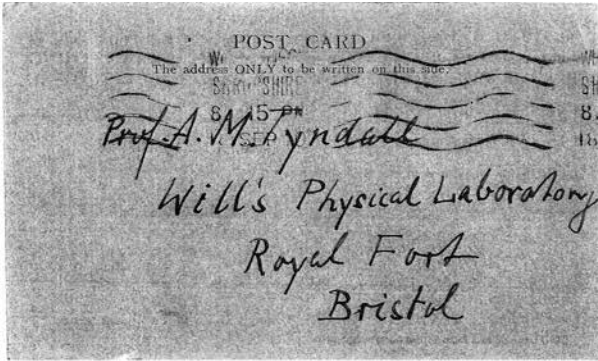 POST CARD
The address ONLY to be written on this side.
SHIRE
8. 15 PM
SEP
8.
18
Prof. A. M. Tyndall
Will's Physical Laboratory
Royal Fort
Bristol